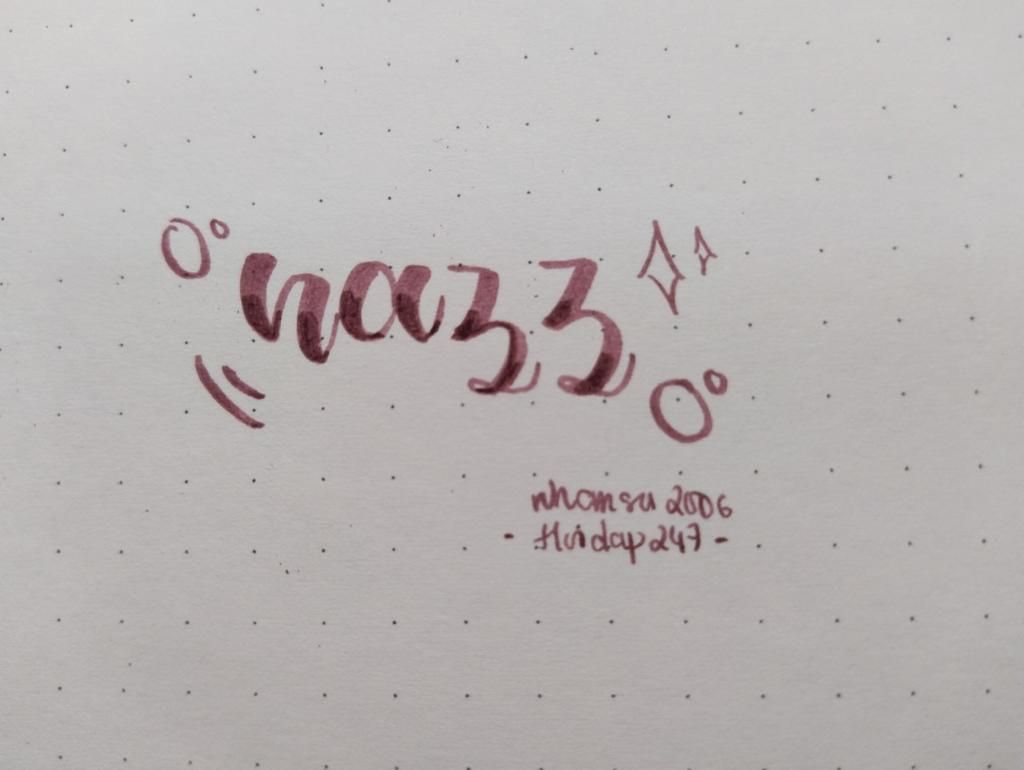 nazz
nhomsu2006
- Hoidap247 -